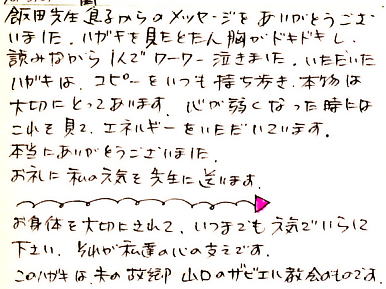 飯田先生 直々からのメッセージをありがとうござ
いました。ハガキを見たとたん胸がドキドキし、
読みながら1人でワーワー泣きました。いただいた
ハガキは、コピーをいつも持ち歩き、本物は
大切にとってあります。心が弱くなった時には
これを見て、エネルギーをいただいています。
本当にありがとうございました。
お礼に私の元気を先生に送ります。
お身体を大切にされて、いつまでも元気でいらして
下さい。それが私達の心の支えです。
このハガキは、夫の故郷 山口のザビエル教会のものです。